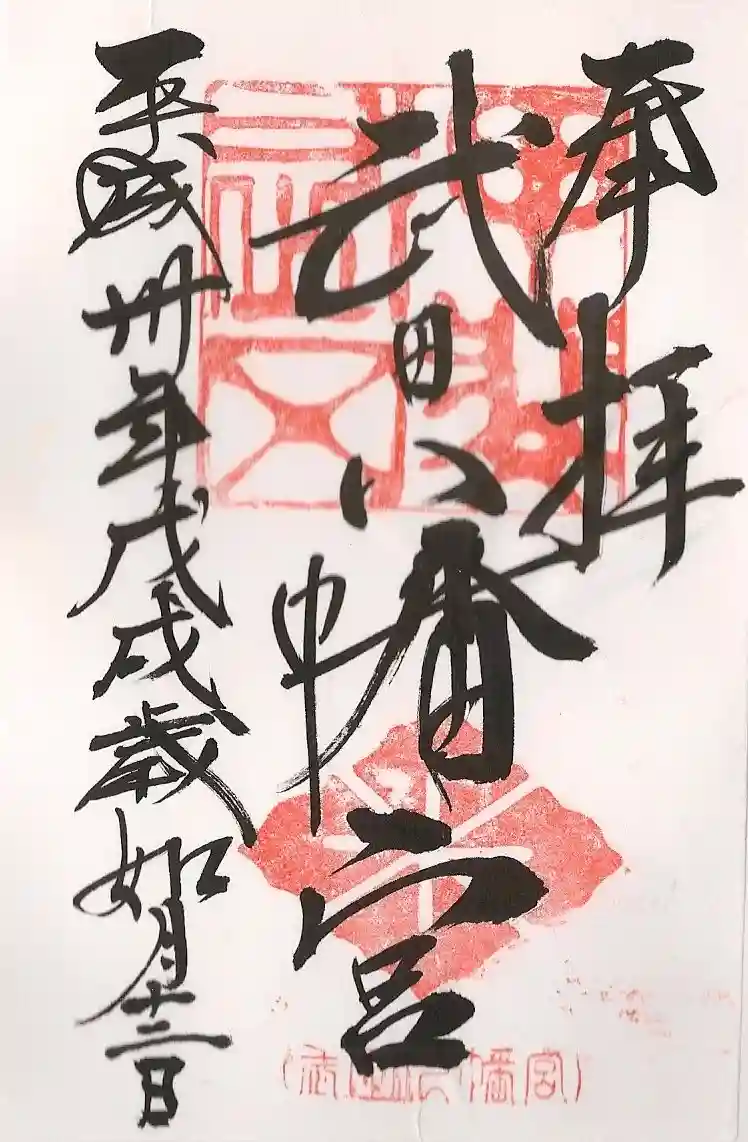 奉拝
武田八幡宮
平成卅年戊戌歳如月十三日
武田八幡宮